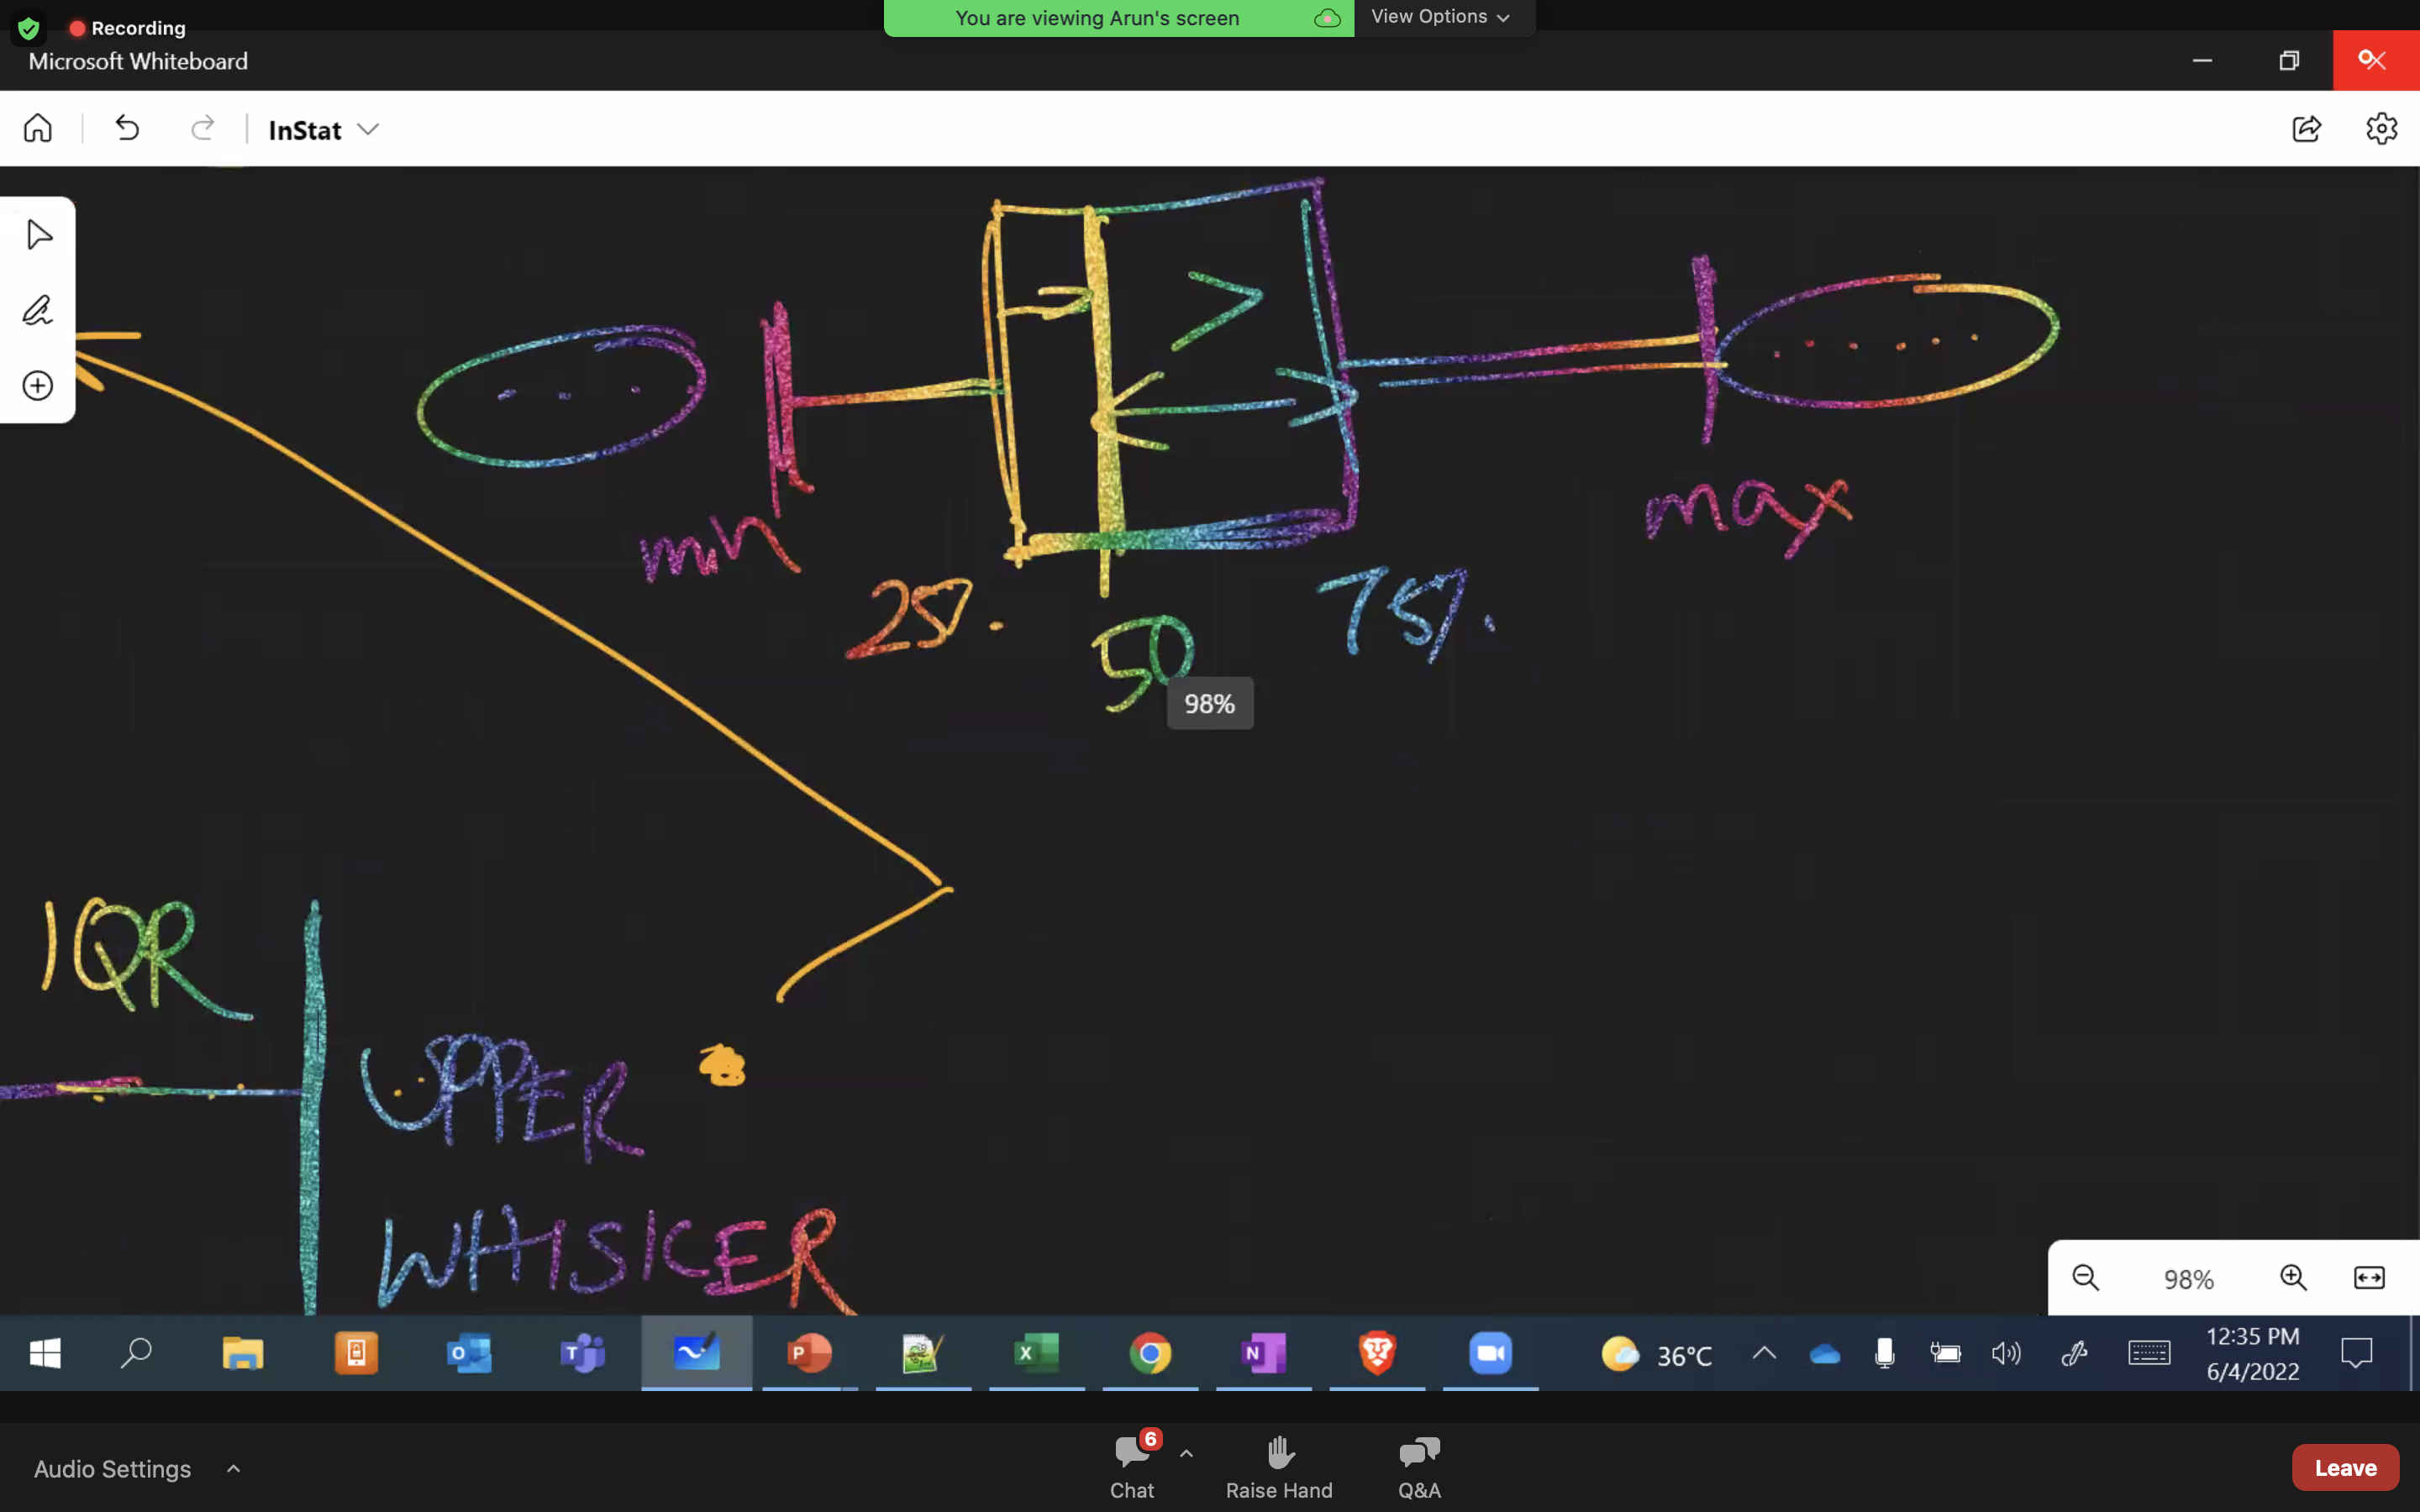 You are viewing Arun's screen
View Options
Recording
Microsoft Whiteboard
InStat
>
min
max
25%.
50
75%.
98%
IQR
UPPER
WHISKER
98%
36°C
12:35 PM
6/4/2022
Audio Settings
6
Chat
Raise Hand
Q&A
Leave